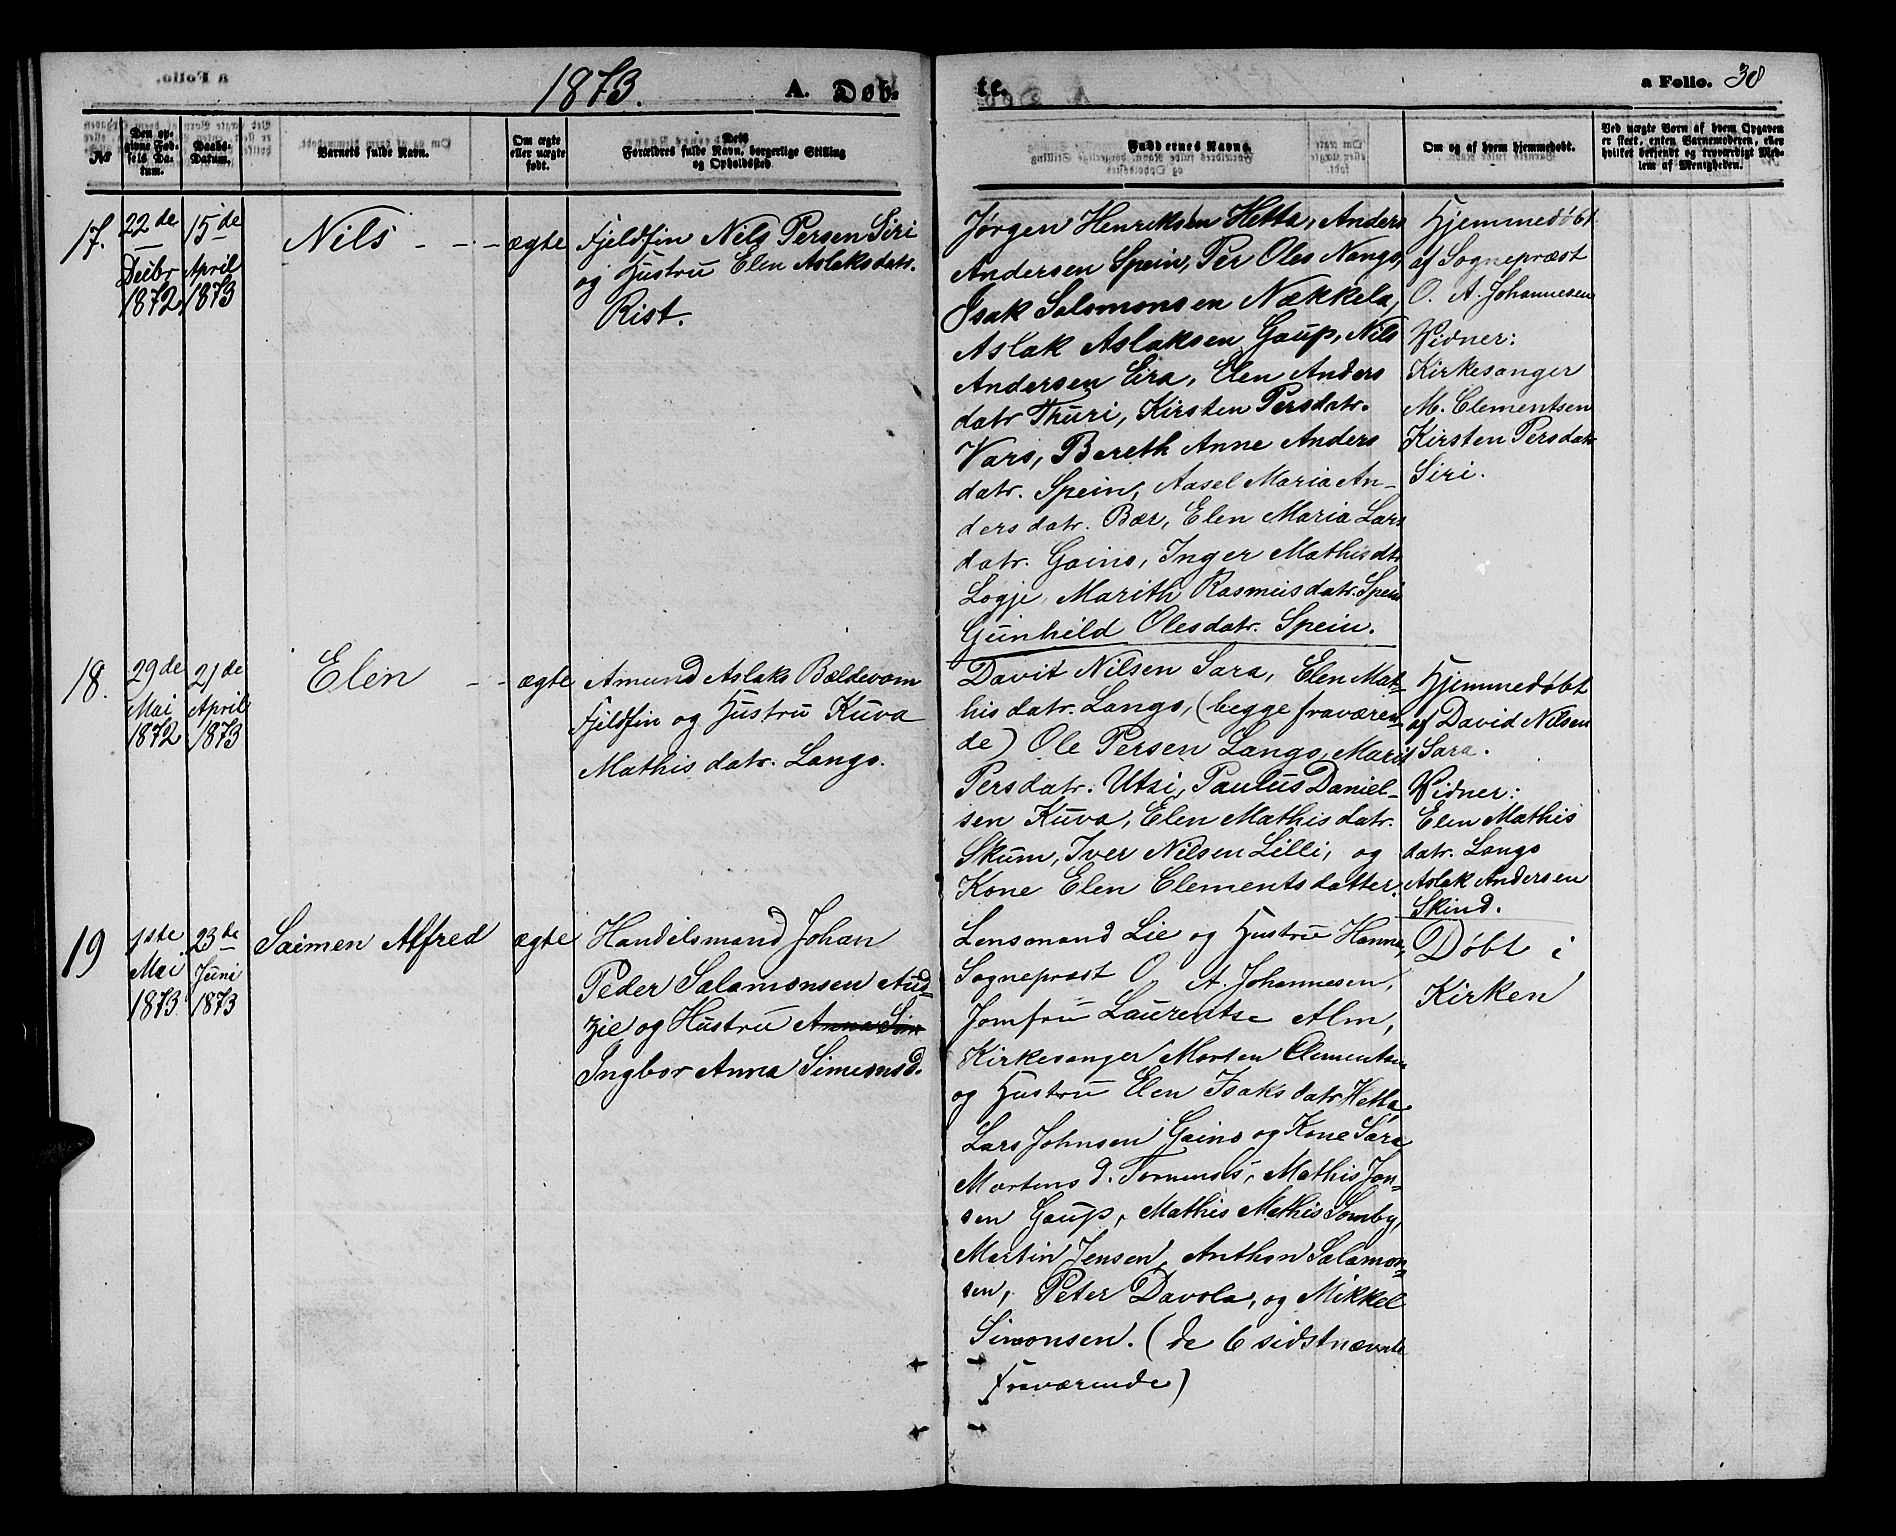 1873. A. Døb-
te. a Folio. 38
No
Den op-
givne Fød-
sels Da-
tum.
Daabs-
Datum.
Barnets fulde Navn.
Om ægte
eller uægte
født.
Dets
Forældres fulde Navn, borgerlige Stilling
og Opholdssted
Faddernes Navne.
Om og af hvem hjemmedøbt.
Ved uægte Børn af hvem Opgaven
er skeet, enten Barnemoderen, eller
hvilket bekjendt og troværdigt Med-
lem af Menigheden.
17.
22de
Decbr
1872
15de
April
1873
Nils
ægte
Fjeldfin Nils Persen Siri
og Hustru Elen Aslaksdatr.
Rist.
Jørgen Henriksen Hetta, Anders
Andersen Spein, Per Oles Nango,
Isak Salomonsen Nækkela,
Aslak Aslaksen Gaup, Nils
Andersen Eira, Elen Anders
datr Thuri, Kirsten Persdatr.
Vars, Bereth Anne Anders
datr. Spein, Aasel Maria An-
dersdatr. Bær, Elen Maria Lars
datr. Gaino, Inger Mathisdtr
Logje, Marith Rasmusdatr. Spein
Gunhild Olesdatr. Spein.
Hjemmedøbt
af Sognepræst
O. A. Johannesen
Vidner:
Kirkesanger
M. Clementsen
Kirsten Persdatr
Siri.
18.
29de
Mai
1872
21de
April
1873
Elen
ægte
Amund Aslaks Bældevom
Fjeldfin og Hustru Kuva
Mathisdatr. Lango.
Davit Nilsen Sara, Elen Mat-
his datr. Lango, (begge fraværen-
de) Ole Persen Lango, Marit
Persdatr. Utsi, Paulus Daniel-
sen Kuva, Elen Mathisdatr.
Skum, Iver Nilsen Lilli, og
Kone Elen Clementsdatter.
Hjemmedøbt
af David Nilsen
Sara.
Vidner:
Elen Mathis
datr. Lango
Aslak Andersen
Skind.
19
1ste
Mai
1873
23de
Juni
1873
Saimen Alfred
ægte
Handelsmand Johan
Peder Salamonsen Aud-
zie og Hustru Anna Sim
Ingbor Anna Simonsd.
Lensmand Lie og Hustru Hanna,
Sognepræst O. A. Johannesen,
Jomfru Laurentse Alm,
Kirkesanger Morten Clementsen
og Hustru Elen Isaksdatr Hetta,
Lars Johnsen Gaino og Kone Sara
Mortensd. Tornensis, Mathis Jon-
sen Gaup, Mathis Mathis Somby,
Martin Jensen, Anthon Salamon-
sen, Peter Davola, og Mikkel
Simonsen. (de 6 sidstnævnte
Fraværende)
Døbt i
Kirken